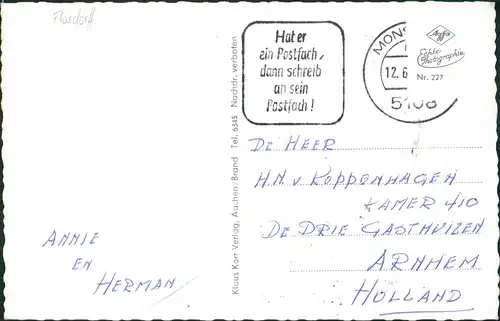 Flosdorff
Hat er
ein Postfach,
dann schreib
an sein
Postfach!
MONS
12.6
5108
Agfa
Echte
Photographie
Nr. 227
Klaus Korr Verlag, Aachen/Brand Tel. 6345 Nachdr. verboten
DE HEER
H.N. v KOPPENHAGEN
KAMER 410
DE DRIE GASTHUIZEN
ARNHEM
HOLLAND
ANNIE
EN
HERMAN